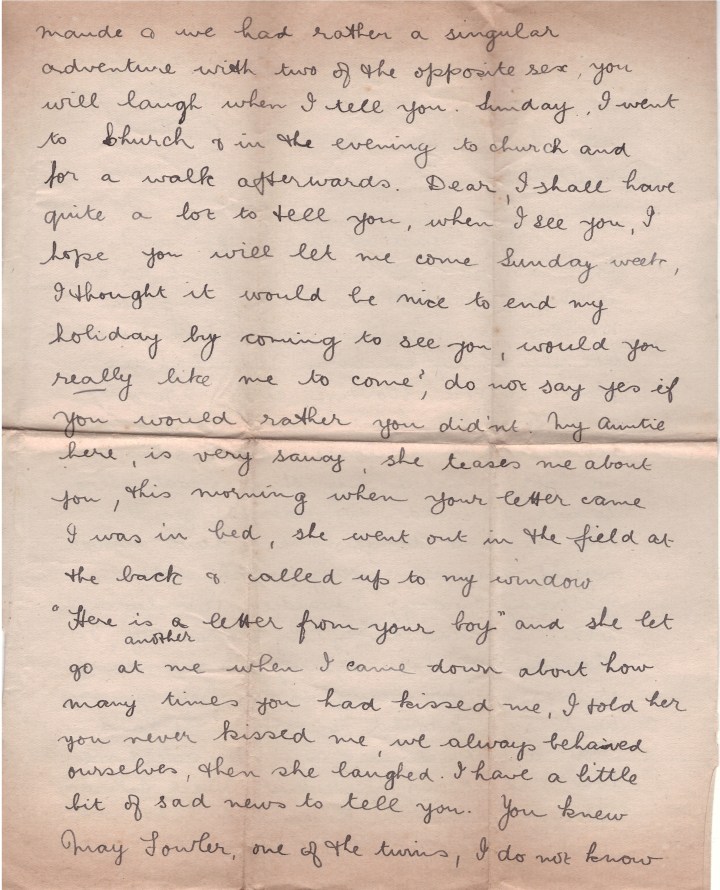 Maude & we had rather a singular
adventure with two of the opposite sex, you
will laugh when I tell you. Sunday, I went
to Church & in the evening to church and
for a walk afterwards. Dear, I shall have
quite a lot to tell you, when I see you, I
hope you will let me come Sunday week,
I thought it would be nice to end my
holiday by coming to see you, would you
really like me to come?, do not say yes if
you would rather you did'nt. My Auntie
here, is very saucy, she teases me about
you, this morning when your letter came
I was in bed, she went out in the field at
the back & called up to my window
"Here is a letter from your boy" and she let
another
go at me when I came down about how
many times you had kissed me, I told her
you never kissed me, we always behaived
ourselves, then she laughed. I have a little
bit of sad news to tell you. You knew
May Fowler, one of the twins, I do not know